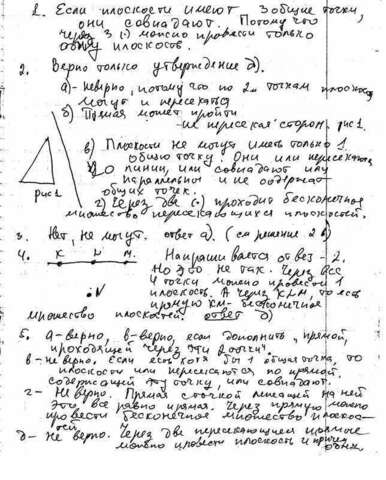 1. Если плоскости имеют 3 общие точки,
они совпадают. Потому что
через 3 (·) можно провести только
одну плоскость.
2. Верно только утверждение д).
а) - неверно, потому что по 2м точкам плоскости
могут и пересекаться
б) Прямая может пройти
не пересекая сторон, рис 1.
в) Плоскости не могут иметь только 1
общую точку. Они или пересекаются
по линии, или совпадают или
параллельны и не содержат
общих точек.
рис 1
г) Через две (·) проходит бесконечное
множество пересекающихся плоскостей.
3. Нет, не могут. ответ а). (см решение 2 в)
4. K L M. Напрашивается ответ - 2.
Но это не так. Через все
4 точки можно провести 1
плоскость. А через KLM, то есть
прямую KM - бесконечное
•N
множество плоскостей. ответ д)
5. а - верно, б - верно, если дополнить "прямой,
проходящей через эти 2 точки".
в - не верно, если есть хотя бы 1 общая точка, то
плоскости или пересекаются по прямой,
содержащей эту точку, или совпадают.
г - Не верно. Прямая с точкой лежащей на ней
это, все равно прямая. Через прямую можно
провести бесконечное множество плоскос-
тей.
д - Не верно. Через две пересекающиеся прямые
можно провести плоскость и причем
одну.